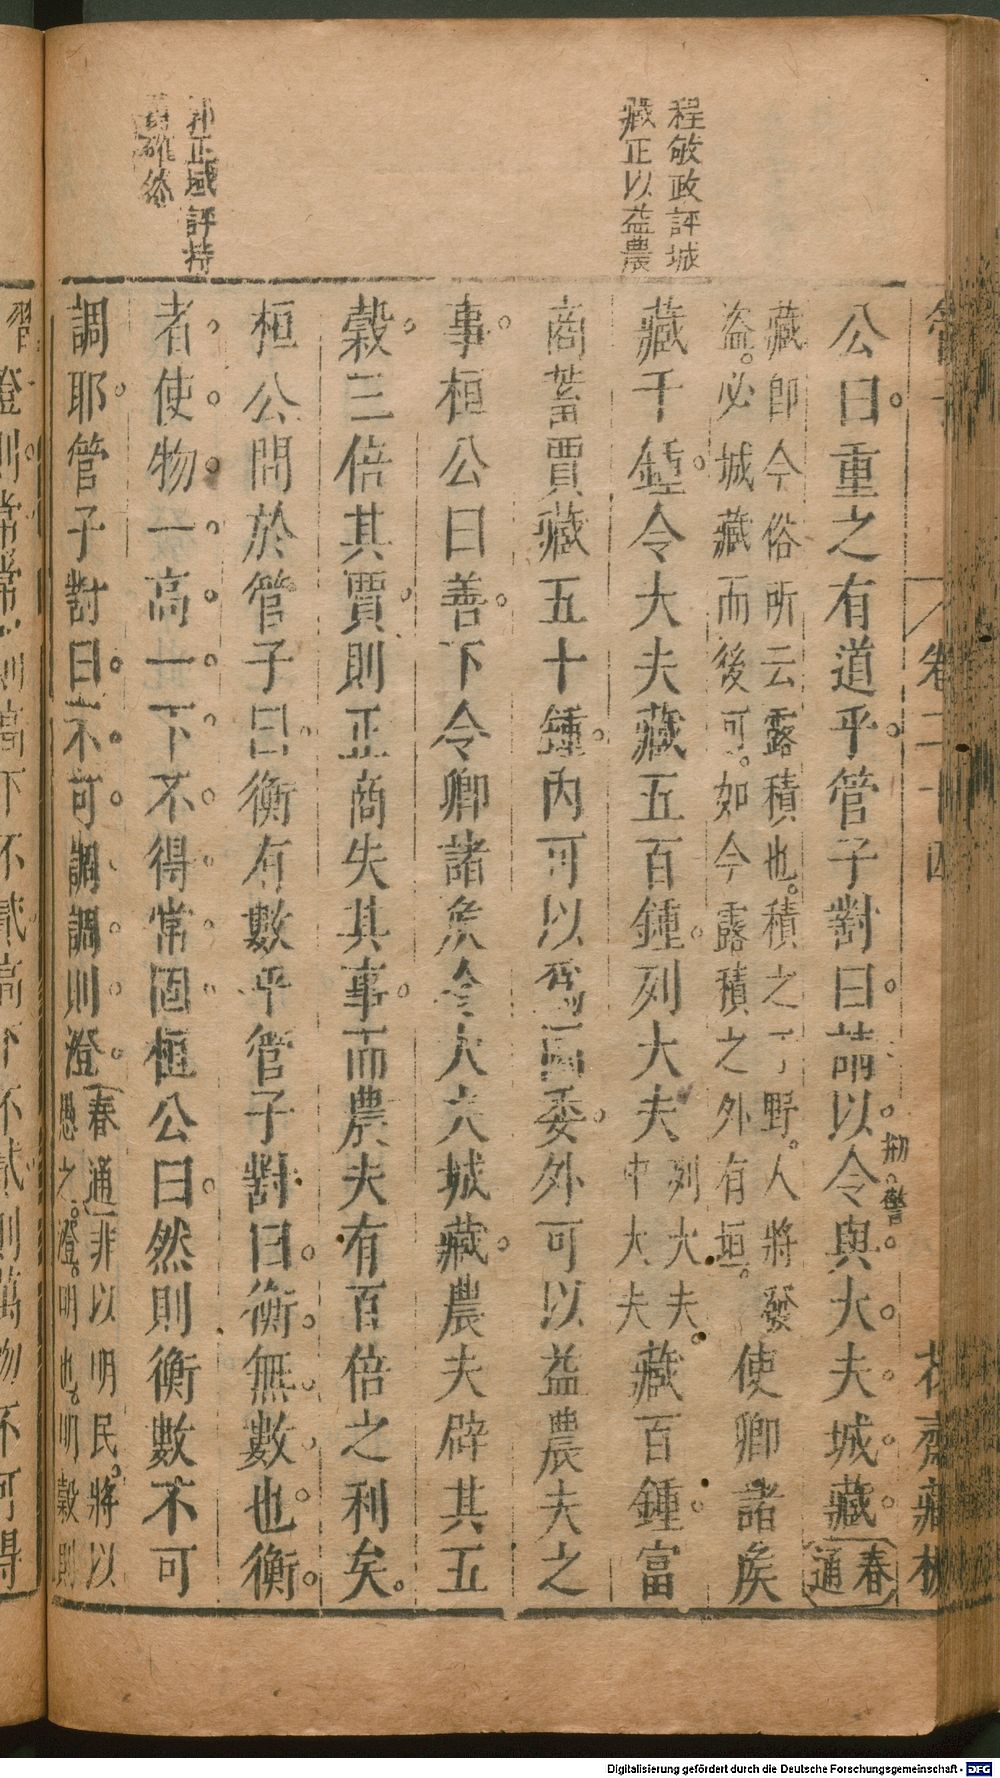 程敏政評城
藏正以益農
郭正域評持
卷二十四
公曰重之有道乎管子對曰請以令與大夫城藏春通
藏卽今俗所云露積也積之于野人將發
盜必城藏而後可如今露積之外有垣
使卿諸矦
藏千鍾令大夫藏五百鍾列大夫列大夫中大夫藏百鍾富
商蓄賈藏五十鍾內可以爲國委外可以益農夫之
事桓公曰善下令卿諸矦令大夫城藏農夫辟其五
穀三倍其賈則正商失其事而農夫有百倍之利矣
桓公問於管子曰衡有數乎管子對曰衡無數也衡
者使物一高一下不得常固桓公曰然則衡數不可
調耶管子對曰不可調調則澄
春通非以明民將以
愚之澄明也明穀則
澄則常常則高下不貳高下不貳則萬物不可得
Digitalisierung gefördert durch die Deutsche Forschungsgemeinschaft - DFG